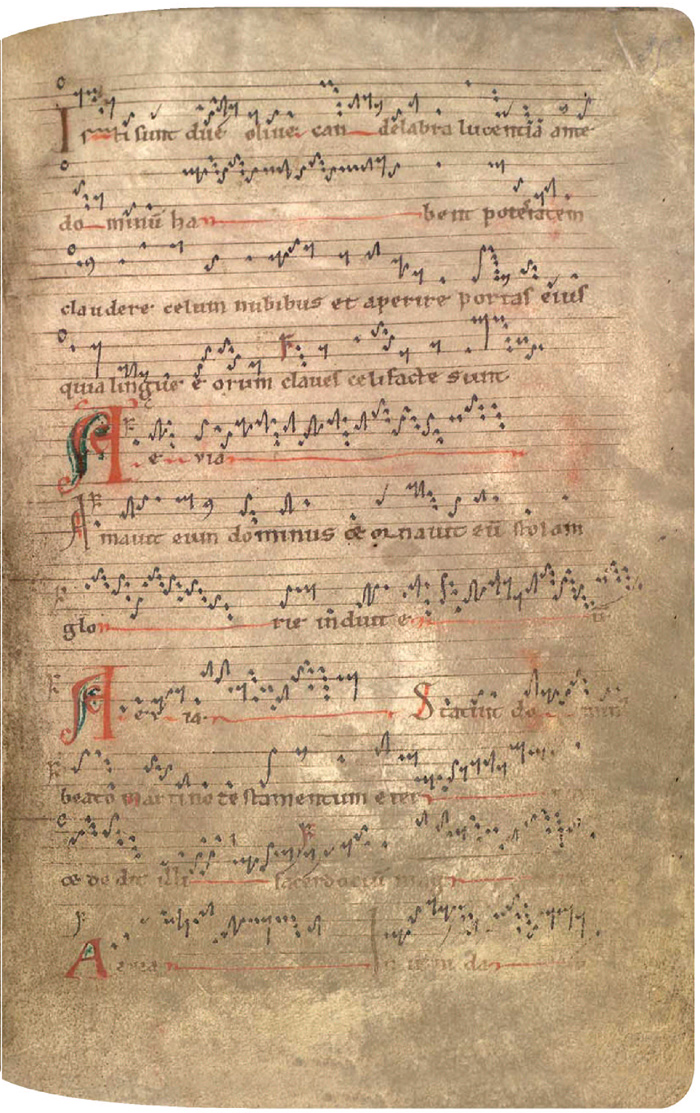 Isti sunt due oliue can delabra lucentiā ante
do minū ha bent potestatem
claudere celum nubibus et aperire portas eius
quia lingue eorum claues celi facte sunt
A e via
Amauit eum dominus & ornauit eū stolam
glo rie induit e ū
A e v ia Statuit do min
beato Martino testamentum eter
& de dit illi sacerdotiū mag
A evia In uen da